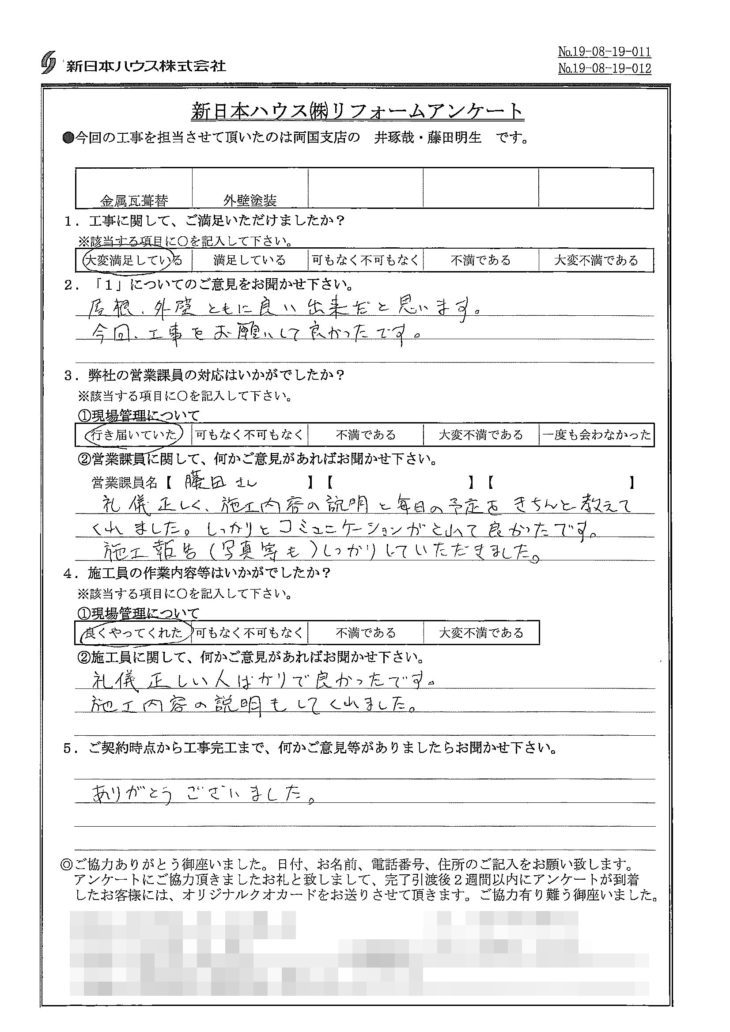 新日本ハウス株式会社
No.19-08-19-011
No.19-08-19-012
新日本ハウス㈱リフォームアンケート
●今回の工事を担当させて頂いたのは両国支店の 井琢哉・藤田明生 です。
金属瓦葺替 外壁塗装
1．工事に関して、ご満足いただけましたか？
※該当する項目に○を記入して下さい。
大変満足している 満足している 可もなく不可もなく 不満である 大変不満である
2．「1」についてのご意見をお聞かせ下さい。
屋根、外壁ともに良い出来だと思います。
今回、工事をお願いして良かったです。
3．弊社の営業課員の対応はいかがでしたか？
※該当する項目に○を記入して下さい。
①現場管理について
行き届いていた 可もなく不可もなく 不満である 大変不満である 一度も会わなかった
②営業課員に関して、何かご意見があればお聞かせ下さい。
営業課員名【 藤田さん 】【 】【 】
礼儀正しく、施工内容の説明と毎日の予定をきちんと教えて
くれました。しっかりとコミュニケーションがとれて良かったです。
施工報告（写真等も）しっかりしていただきました。
4．施工員の作業内容等はいかがでしたか？
※該当する項目に○を記入して下さい。
①現場管理について
良くやってくれた 可もなく不可もなく 不満である 大変不満である
②施工員に関して、何かご意見があればお聞かせ下さい。
礼儀正しい人ばかりで良かったです。
施工内容の説明もしてくれました。
5．ご契約時点から工事完工まで、何かご意見等がありましたらお聞かせ下さい。
ありがとうございました。
◎ご協力ありがとう御座いました。日付、お名前、電話番号、住所のご記入をお願い致します。
アンケートにご協力頂きましたお礼と致しまして、完了引渡後２週間以内にアンケートが到着
したお客様には、オリジナルクオカードをお送りさせて頂きます。ご協力有り難う御座いました。